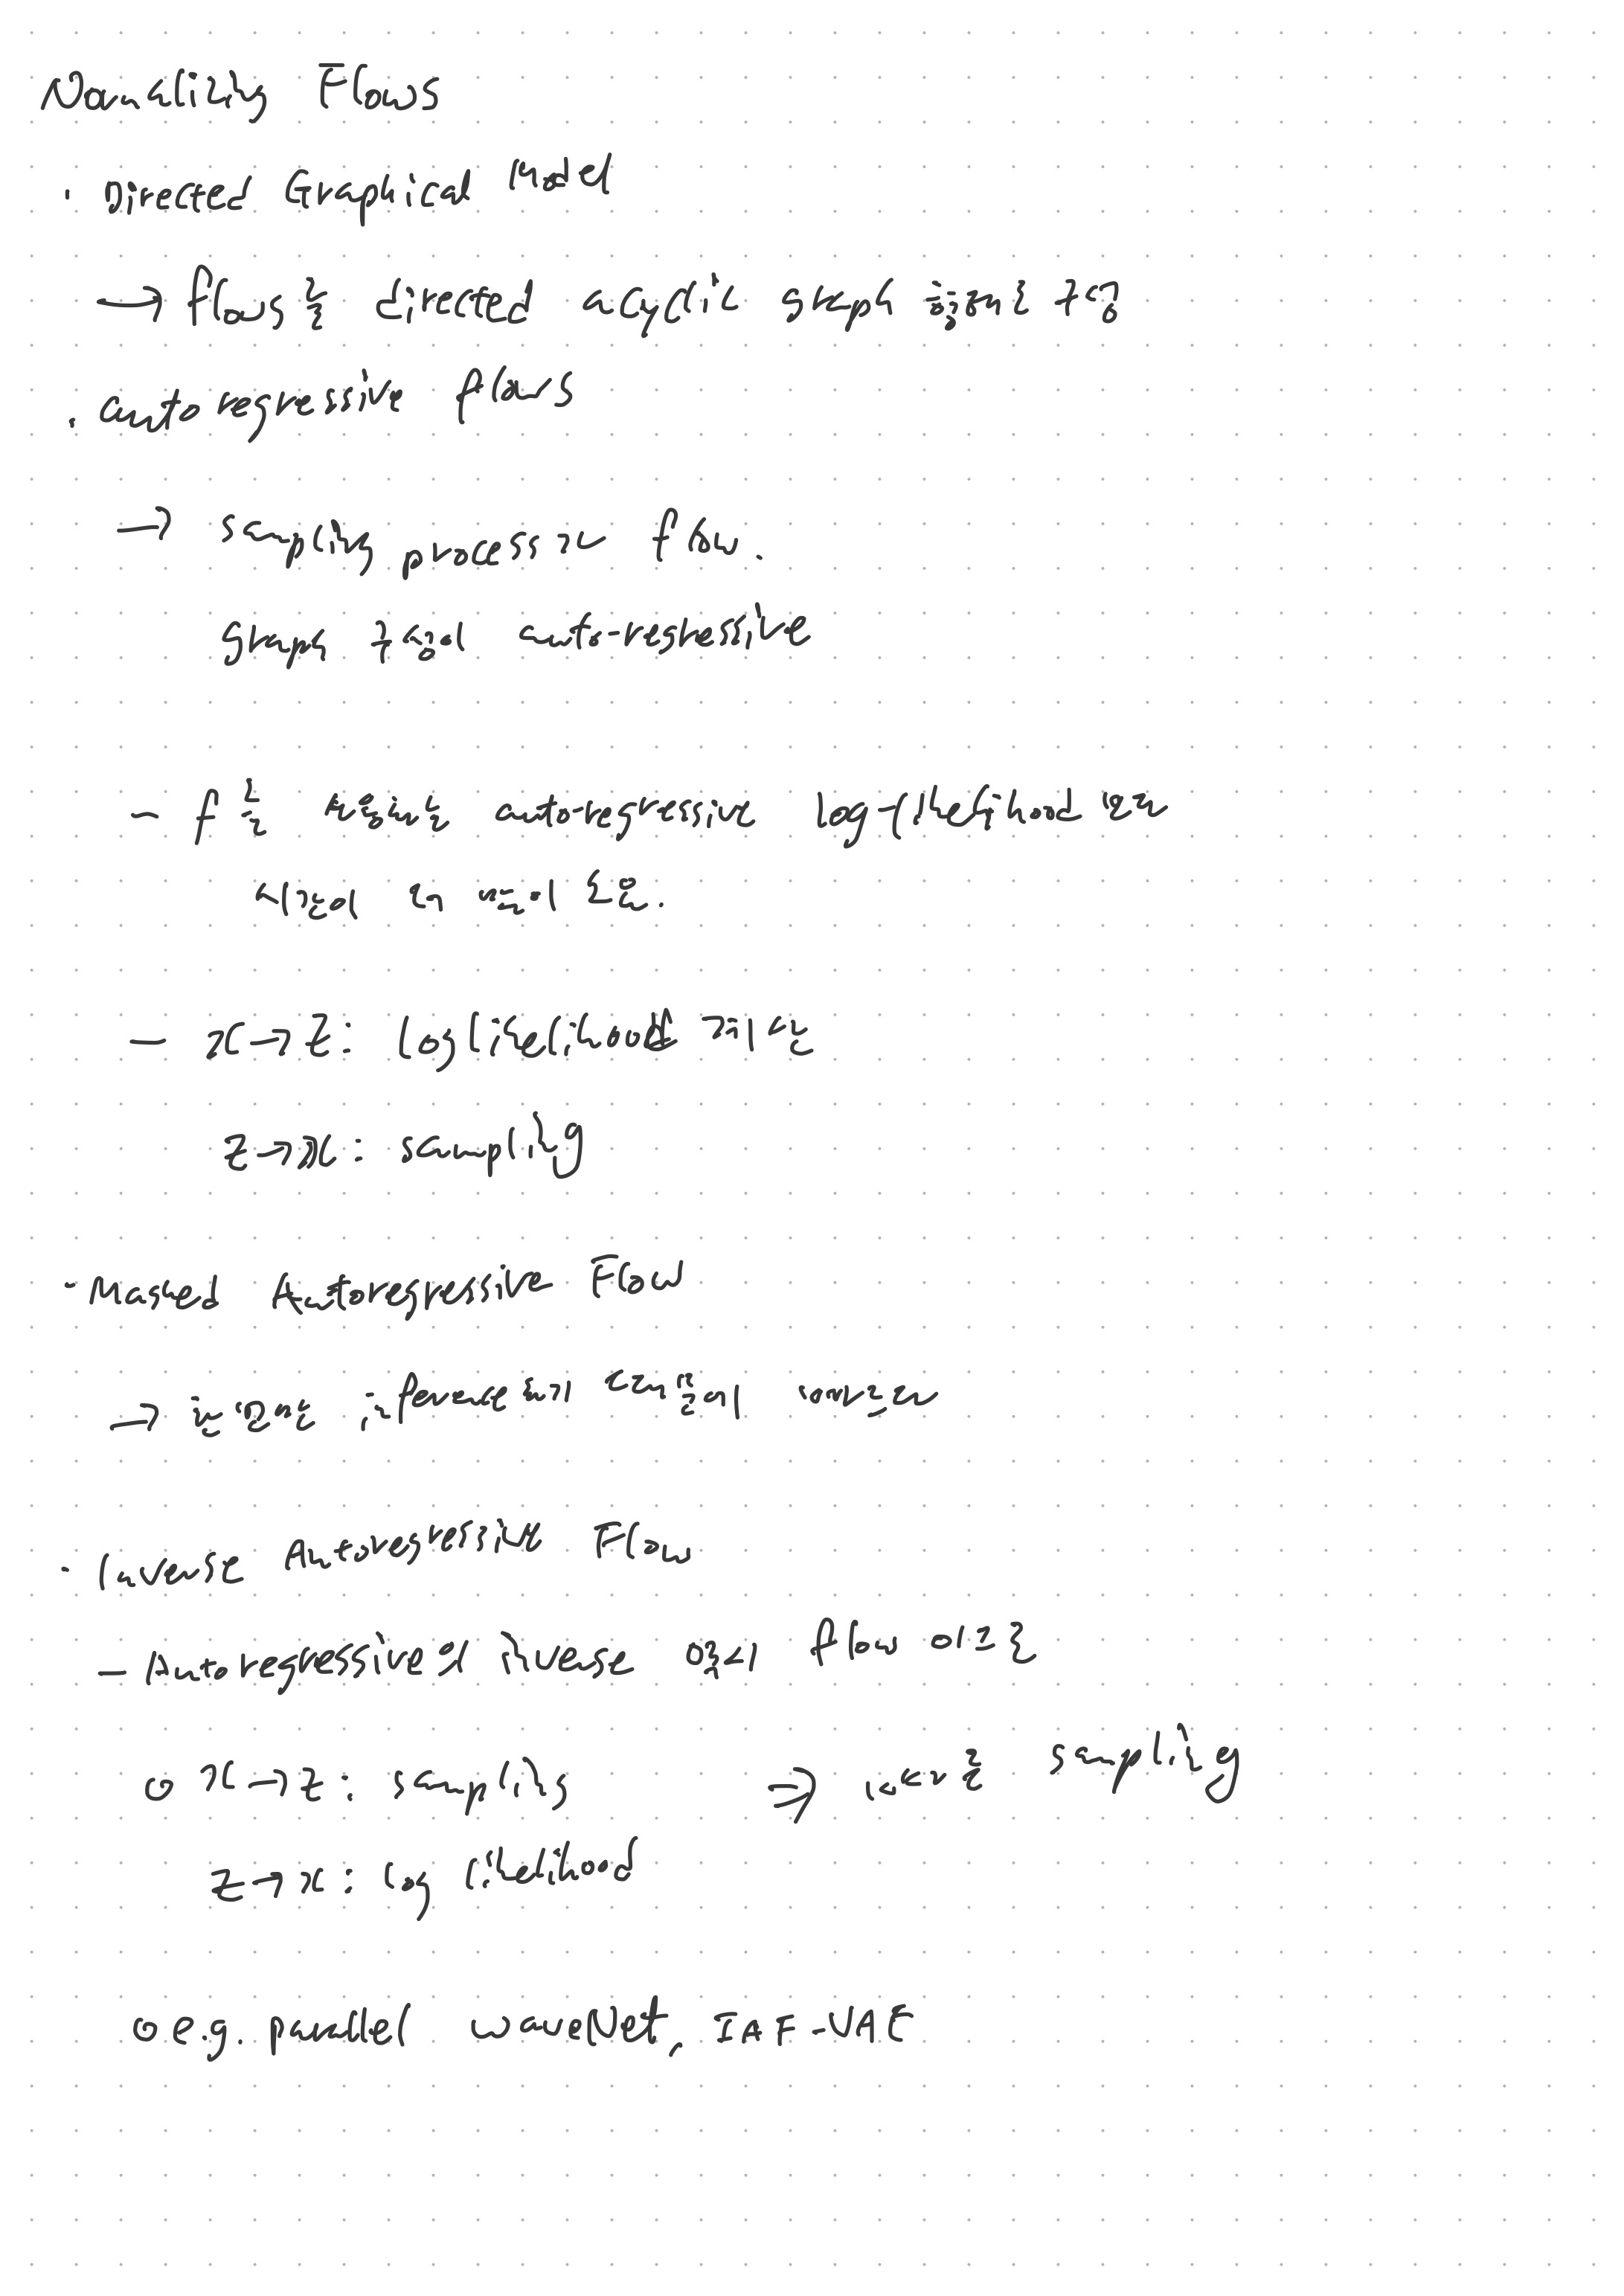 Normalizing Flows
· Directed Graphical Model
→ flows를 directed acyclic graph 형태로 구성
· autoregressive flows
→ sampling process가 flow.
graph 구성이 auto-regressive
- f를 auto-regressive log-likelihood
시간이 더 많이 소요.
- x→z: log likelihood 계산
z→x: sampling
· Masked Autoregressive Flow
→ inference
· Inverse Autoregressive Flow
- Autoregressive의 inverse 역시 flow 이므로
o x→z: sampling ⇒ sampling
z→x: log likelihood
o e.g. parallel waveNet, IAF-VAE